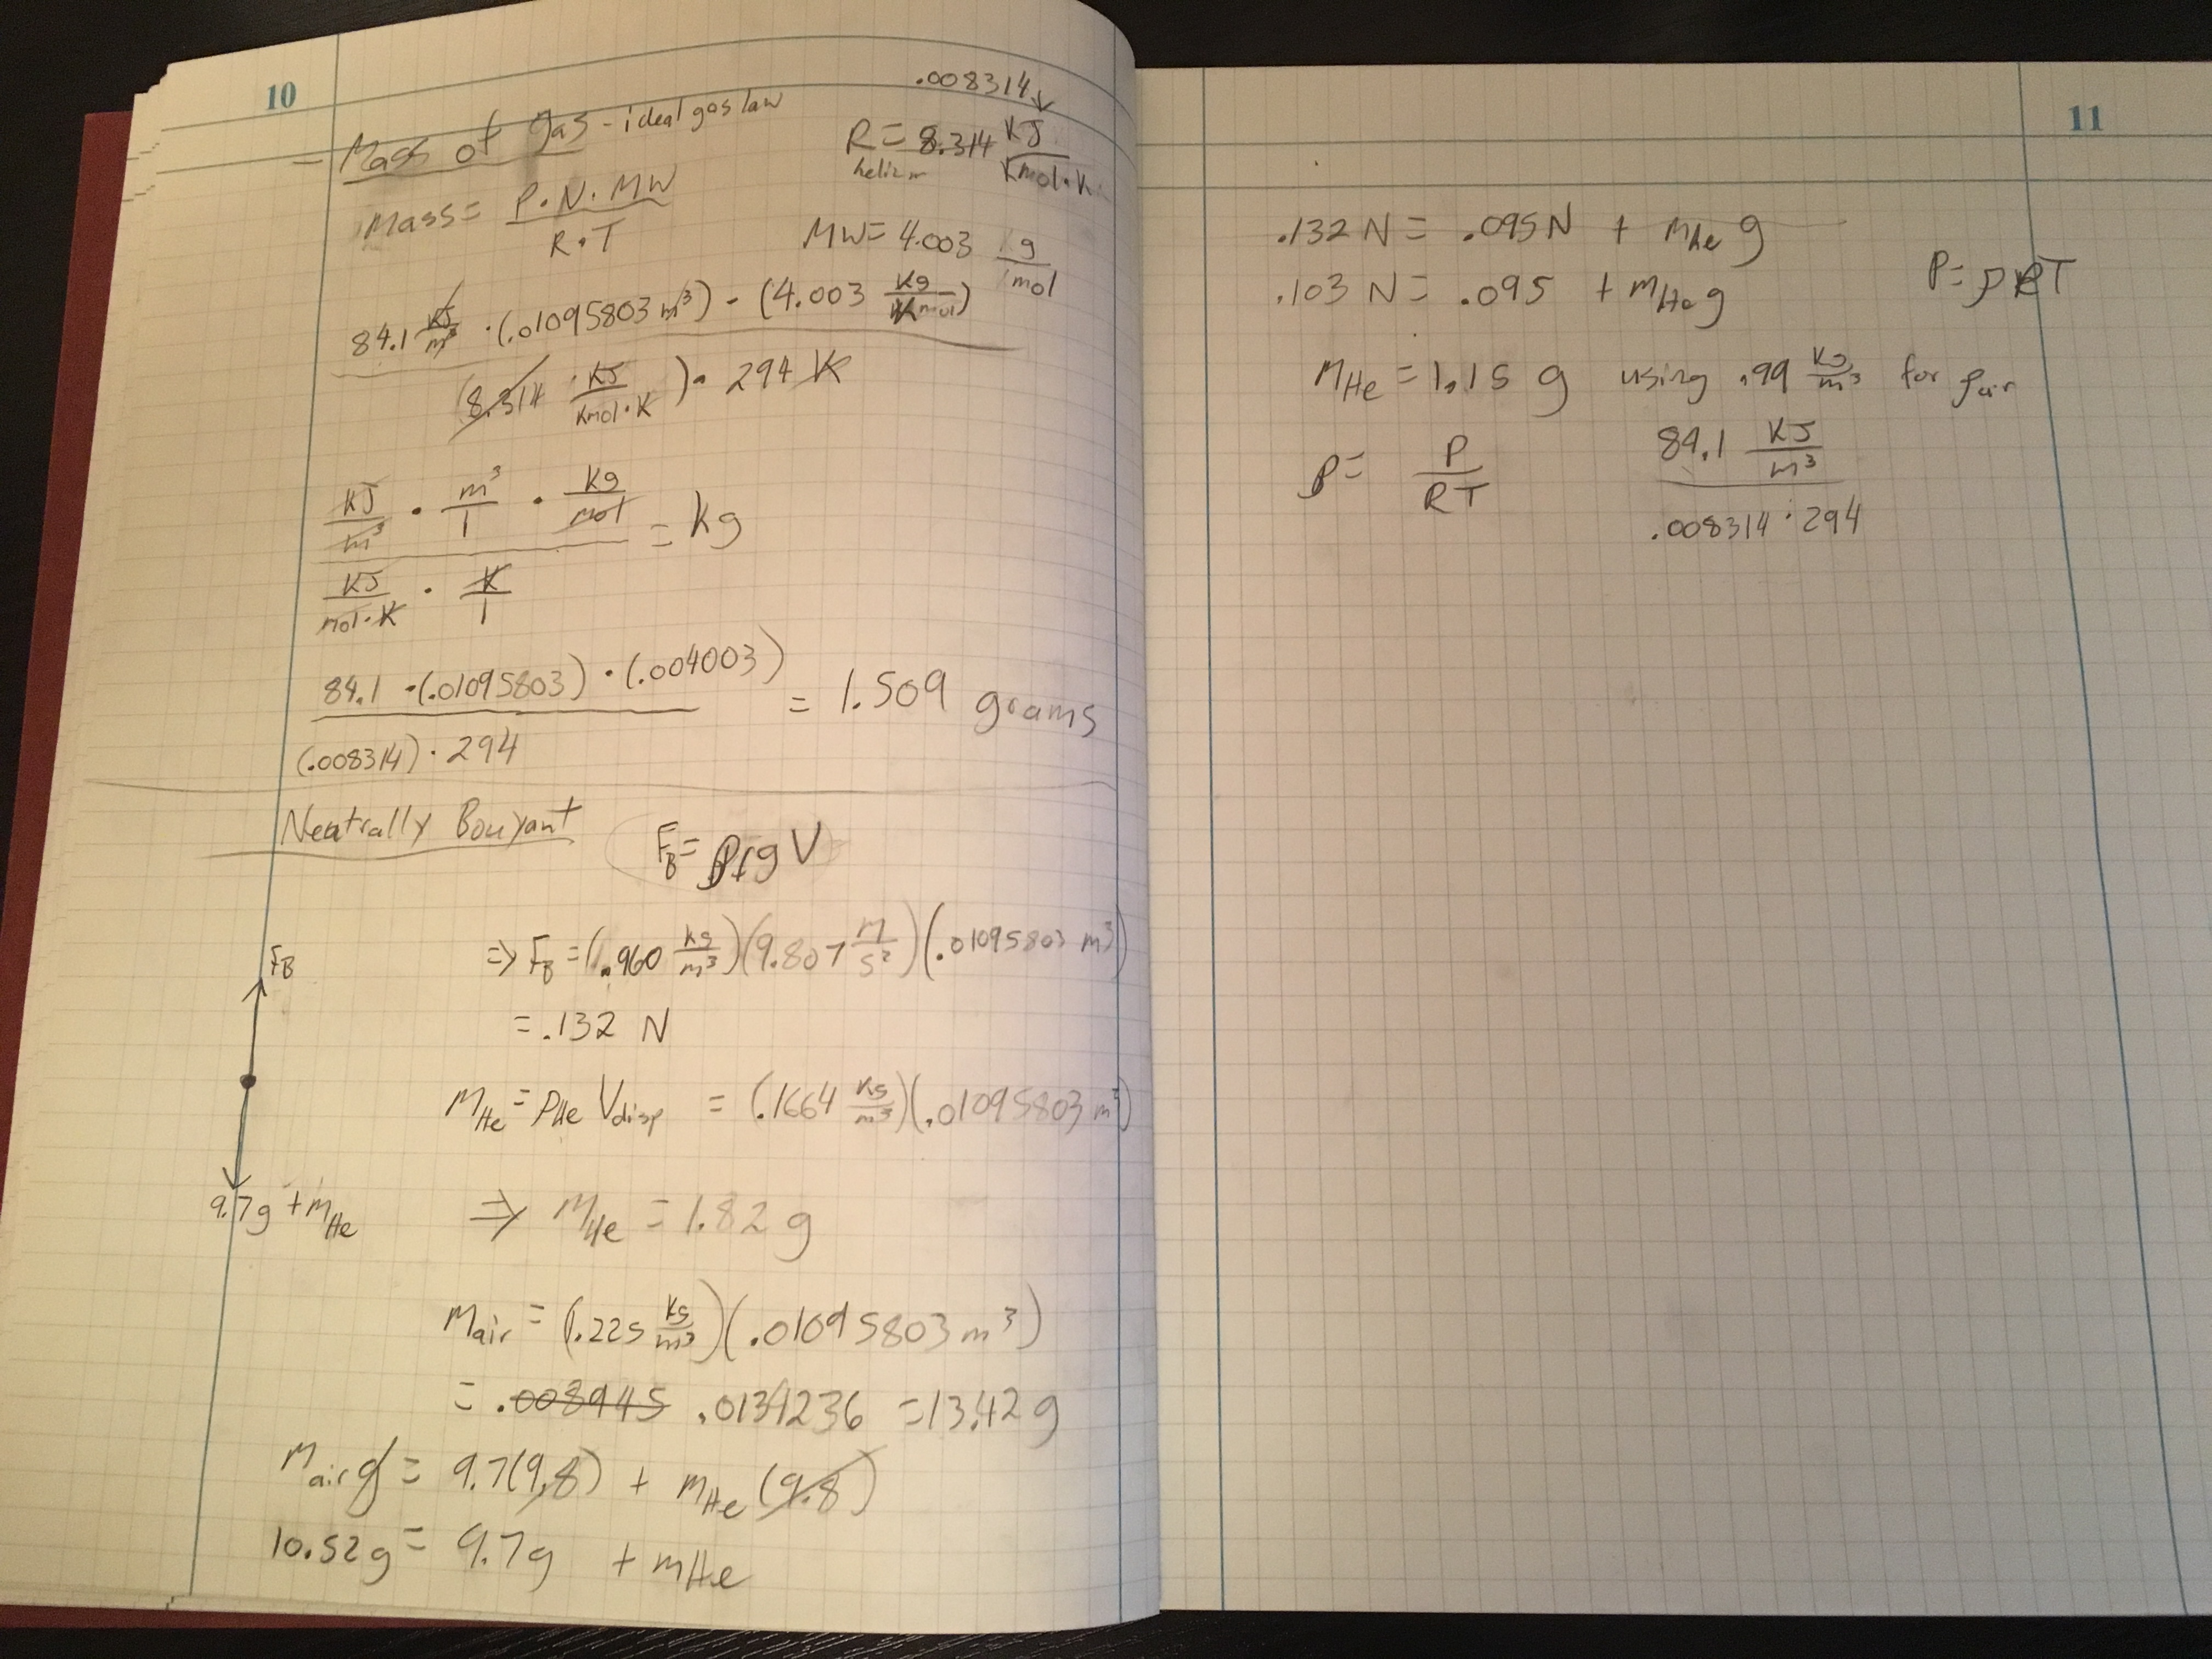 10
.008314 ↓
- Mass of gas - ideal gas law
R = 8.314 KJ/Kmol·K
helium
Mass = P·N·MW / R·T
MW = 4.003 g/mol
84.1 KJ/m³ · (.01095803 m³) - (4.003 Kg/Kmol)
(8.314 · KJ/Kmol·K) · 294 K
KJ/m³ · m³/1 · kg/mol = kg
KJ/mol·K · K/1
84.1 · (.01095803) · (.004003) = 1.509 grams
(.008314) · 294
Neutrally Bouyant
F_B = ρf g V
F_B
⇒ F_B = (.960 kg/m³)(9.807 m/s²)(.01095803 m³)
= .132 N
m_He = ρ_He V_disp = (.1664 kg/m³)(.01095803 m³)
9.7g + m_He
⇒ m_He = 1.82 g
m_air = (1.225 kg/m³)(.01095803 m³)
= .008945 .0134236 = 13.42 g
m_air g = 9.7(9.8) + m_He (9.8)
10.52g = 9.7g + m_He
11
.132 N = .095N + m_He g
.103 N = .095 + m_He g
P = ρRT
m_He = 1.15 g using .99 kg/m³ for ρ_air
ρ = P/RT
84.1 KJ/m³
.008314 · 294